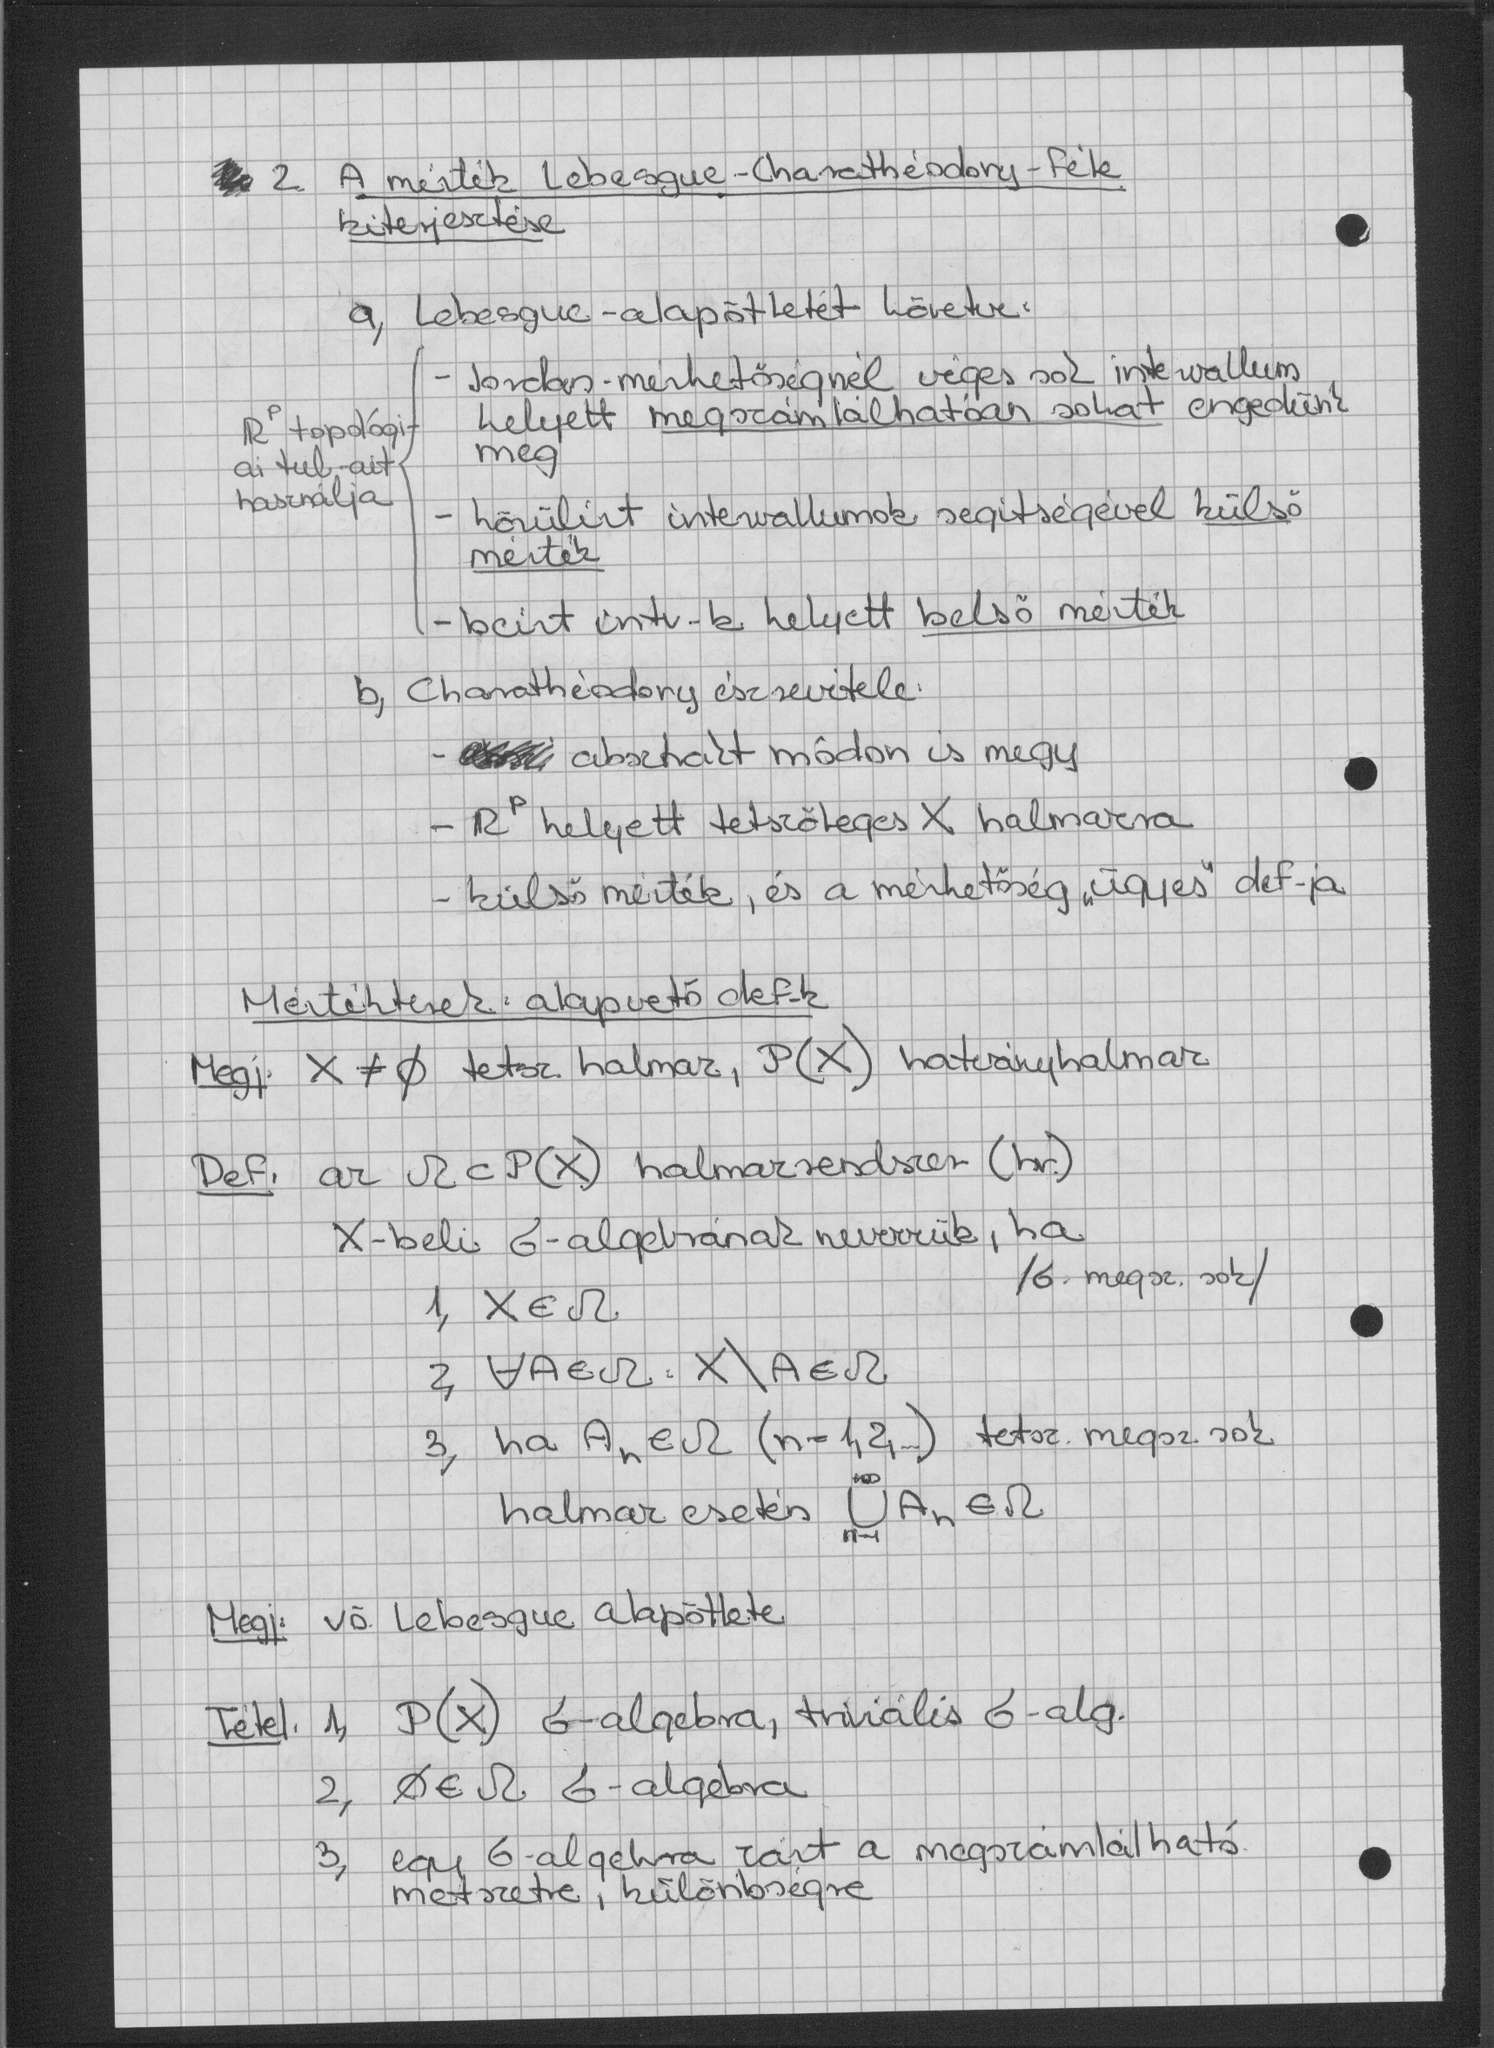 2. A mérték Lebesgue-Charathéodory-féle
kiterjesztése
a, Lebesgue-alapötletét követve:
- Jordan-mérhetőségnél véges sok intervallum
helyett megszámlálhatóan sokat engedünk
meg
ℝᵖ topológi-
ai tul.-ait
használja
- körülírt intervallumok segítségével külső
mérték
- beírt intv-k helyett belső mérték
b, Charathéodory észrevétele:
- absztrakt módon is megy
- ℝᵖ helyett tetszőleges X halmazra
- külső mérték, és a mérhetőség „ügyes" def-ja
Mértékterek: alapvető def-k
Megj: X ≠ ∅ tetsz. halmaz, P(X) hatványhalmaz
Def: az Ω ⊂ P(X) halmazrendszer (hr.)
X-beli σ-algebrának nevezzük, ha
/σ: megsz. sok/
1, X ∈ Ω
2, ∀A ∈ Ω : X\A ∈ Ω
3, ha Aₙ ∈ Ω (n=1,2,...) tetsz. megsz. sok
halmaz esetén ⋃ₙ₌₁^{+∞} Aₙ ∈ Ω
Megj: vö. Lebesgue alapötlete
Tétel: 1, P(X) σ-algebra, triviális σ-alg.
2, ∅ ∈ Ω σ-algebra
3, egy σ-algebra zárt a megszámlálható
metszetre, különbségre